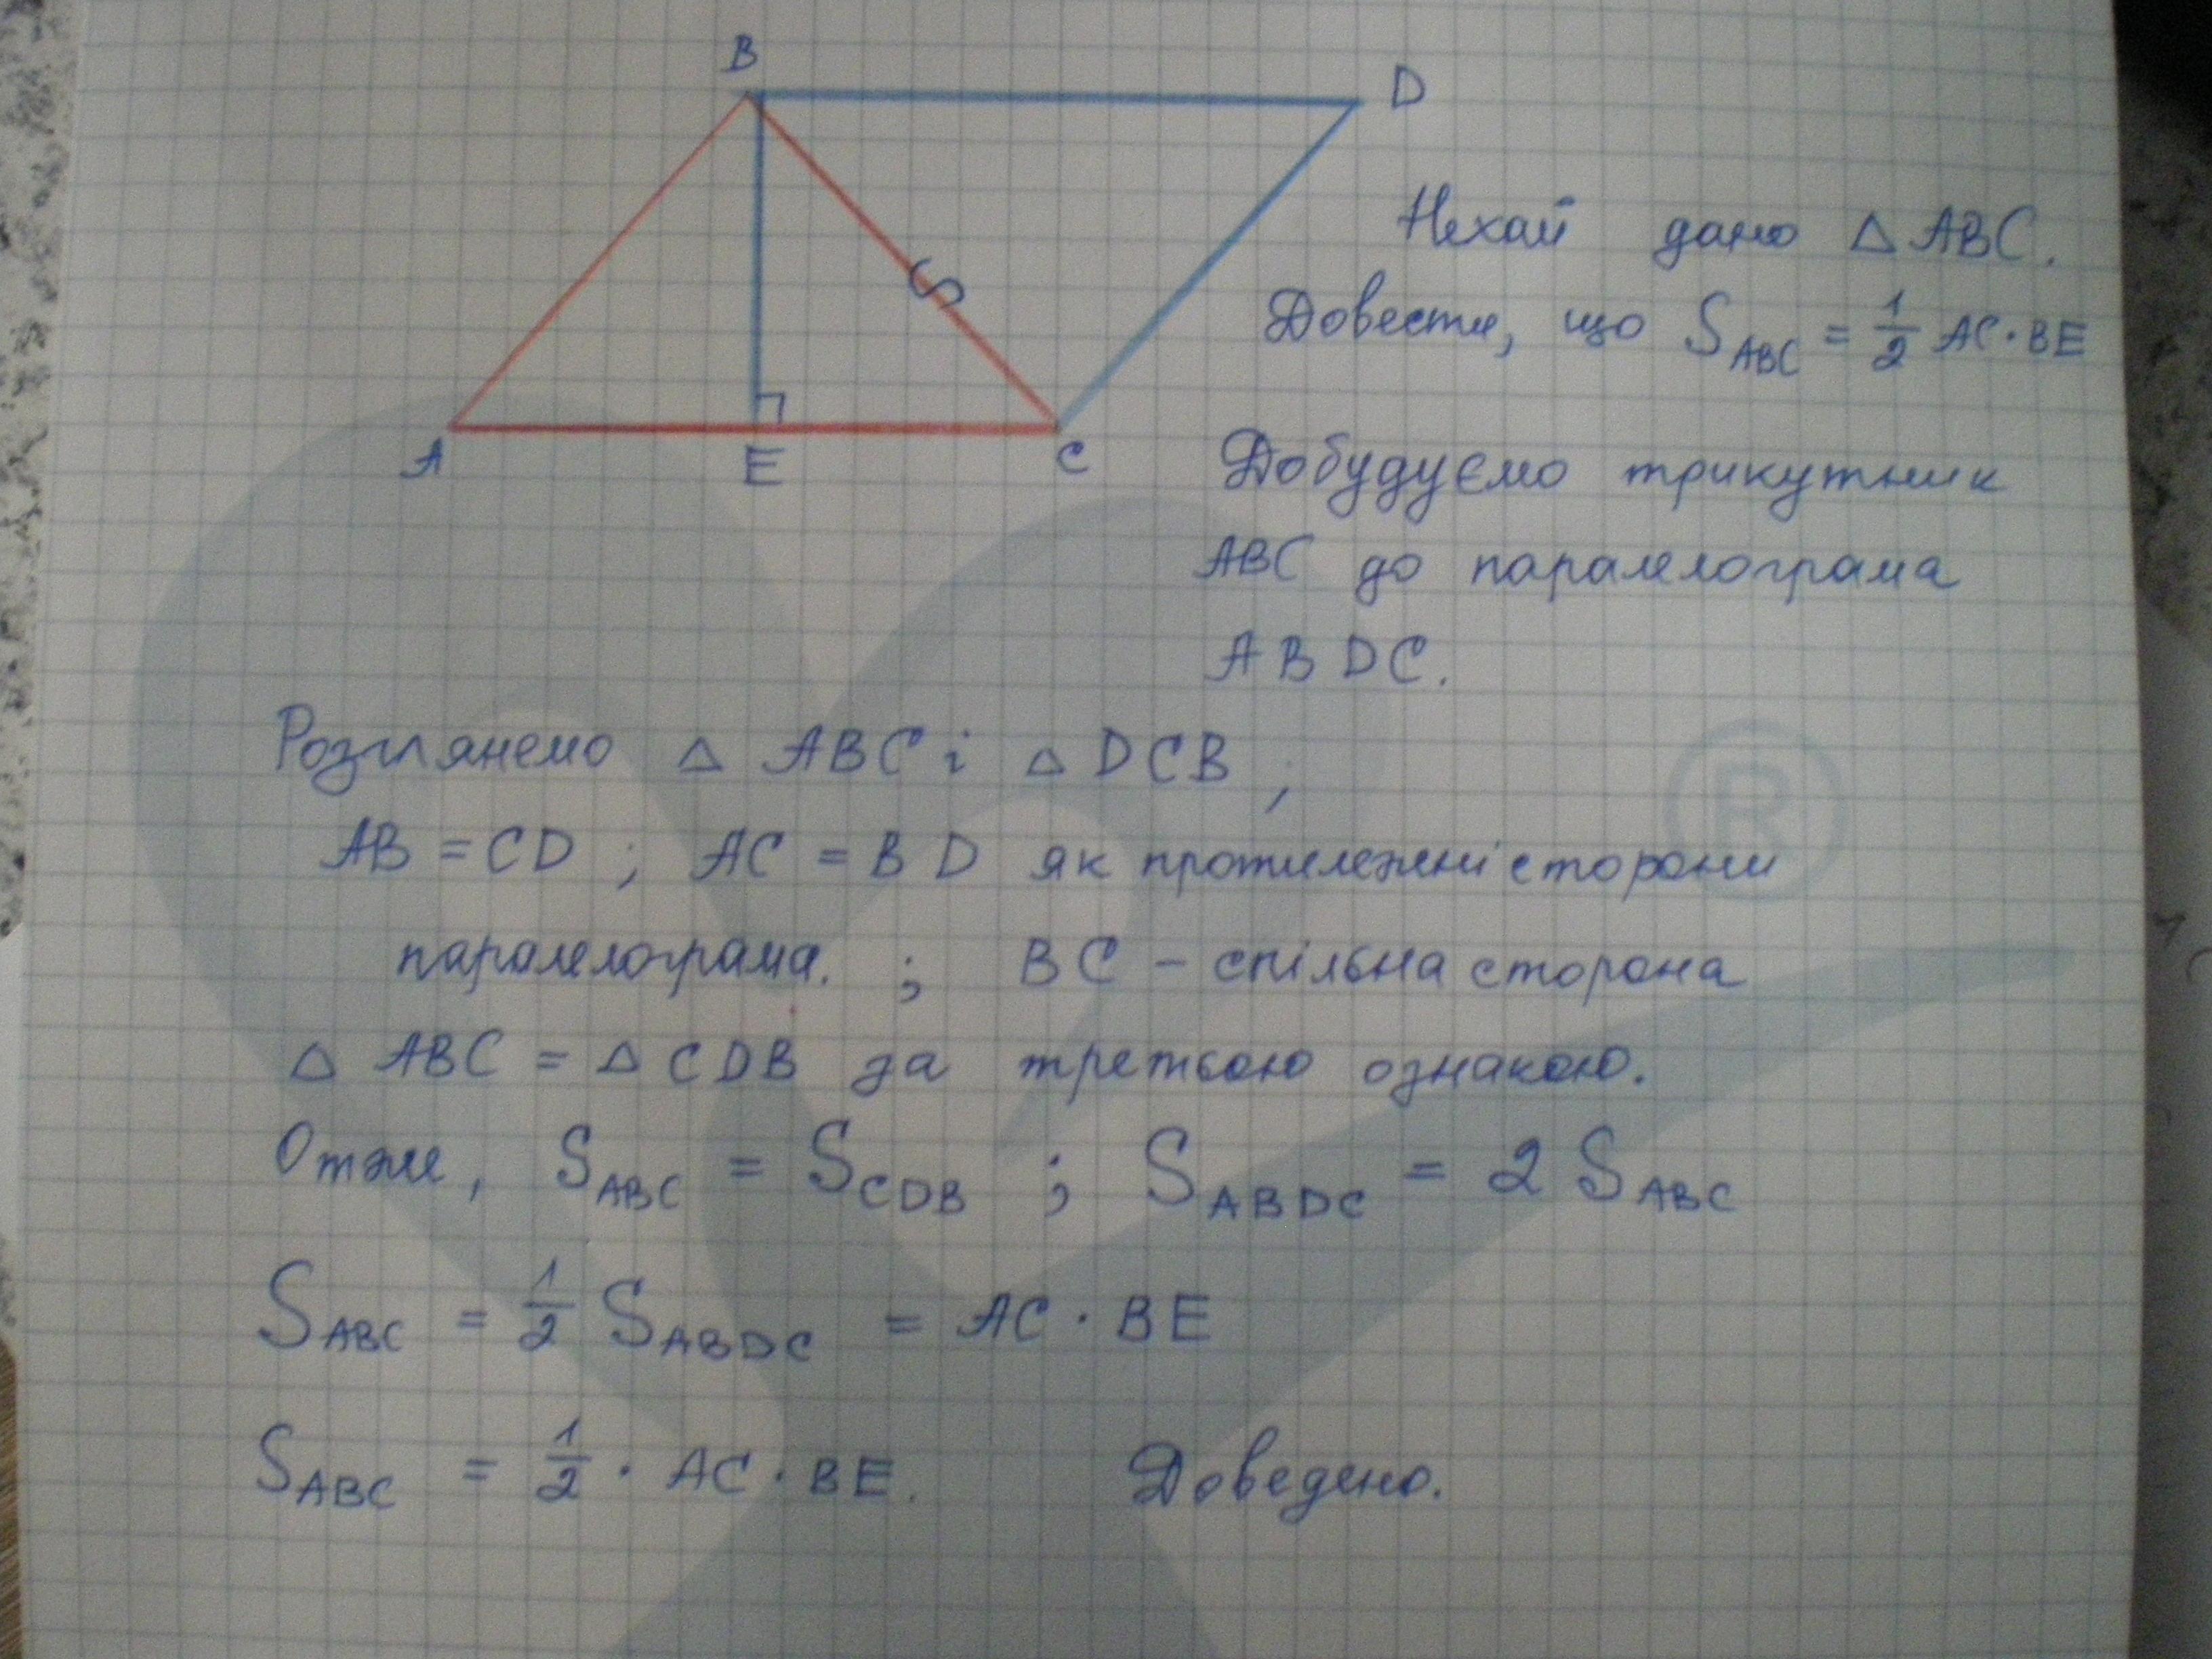 B
D
S
A
E
C
Нехай дано △ ABC.
Довести, що S ABC = 1/2 AC · BE
Добудуємо трикутник
ABC до паралелограма
ABDC.
Розглянемо △ ABC і △ DCB;
AB = CD ; AC = BD як протилежні сторони
паралелограма. ; BC – спільна сторона
△ ABC = △ CDB за третьою ознакою.
Отже, S ABC = S CDB ; S ABDC = 2 S ABC
S ABC = 1/2 S ABDC = AC · BE
S ABC = 1/2 · AC · BE. Доведено.
®